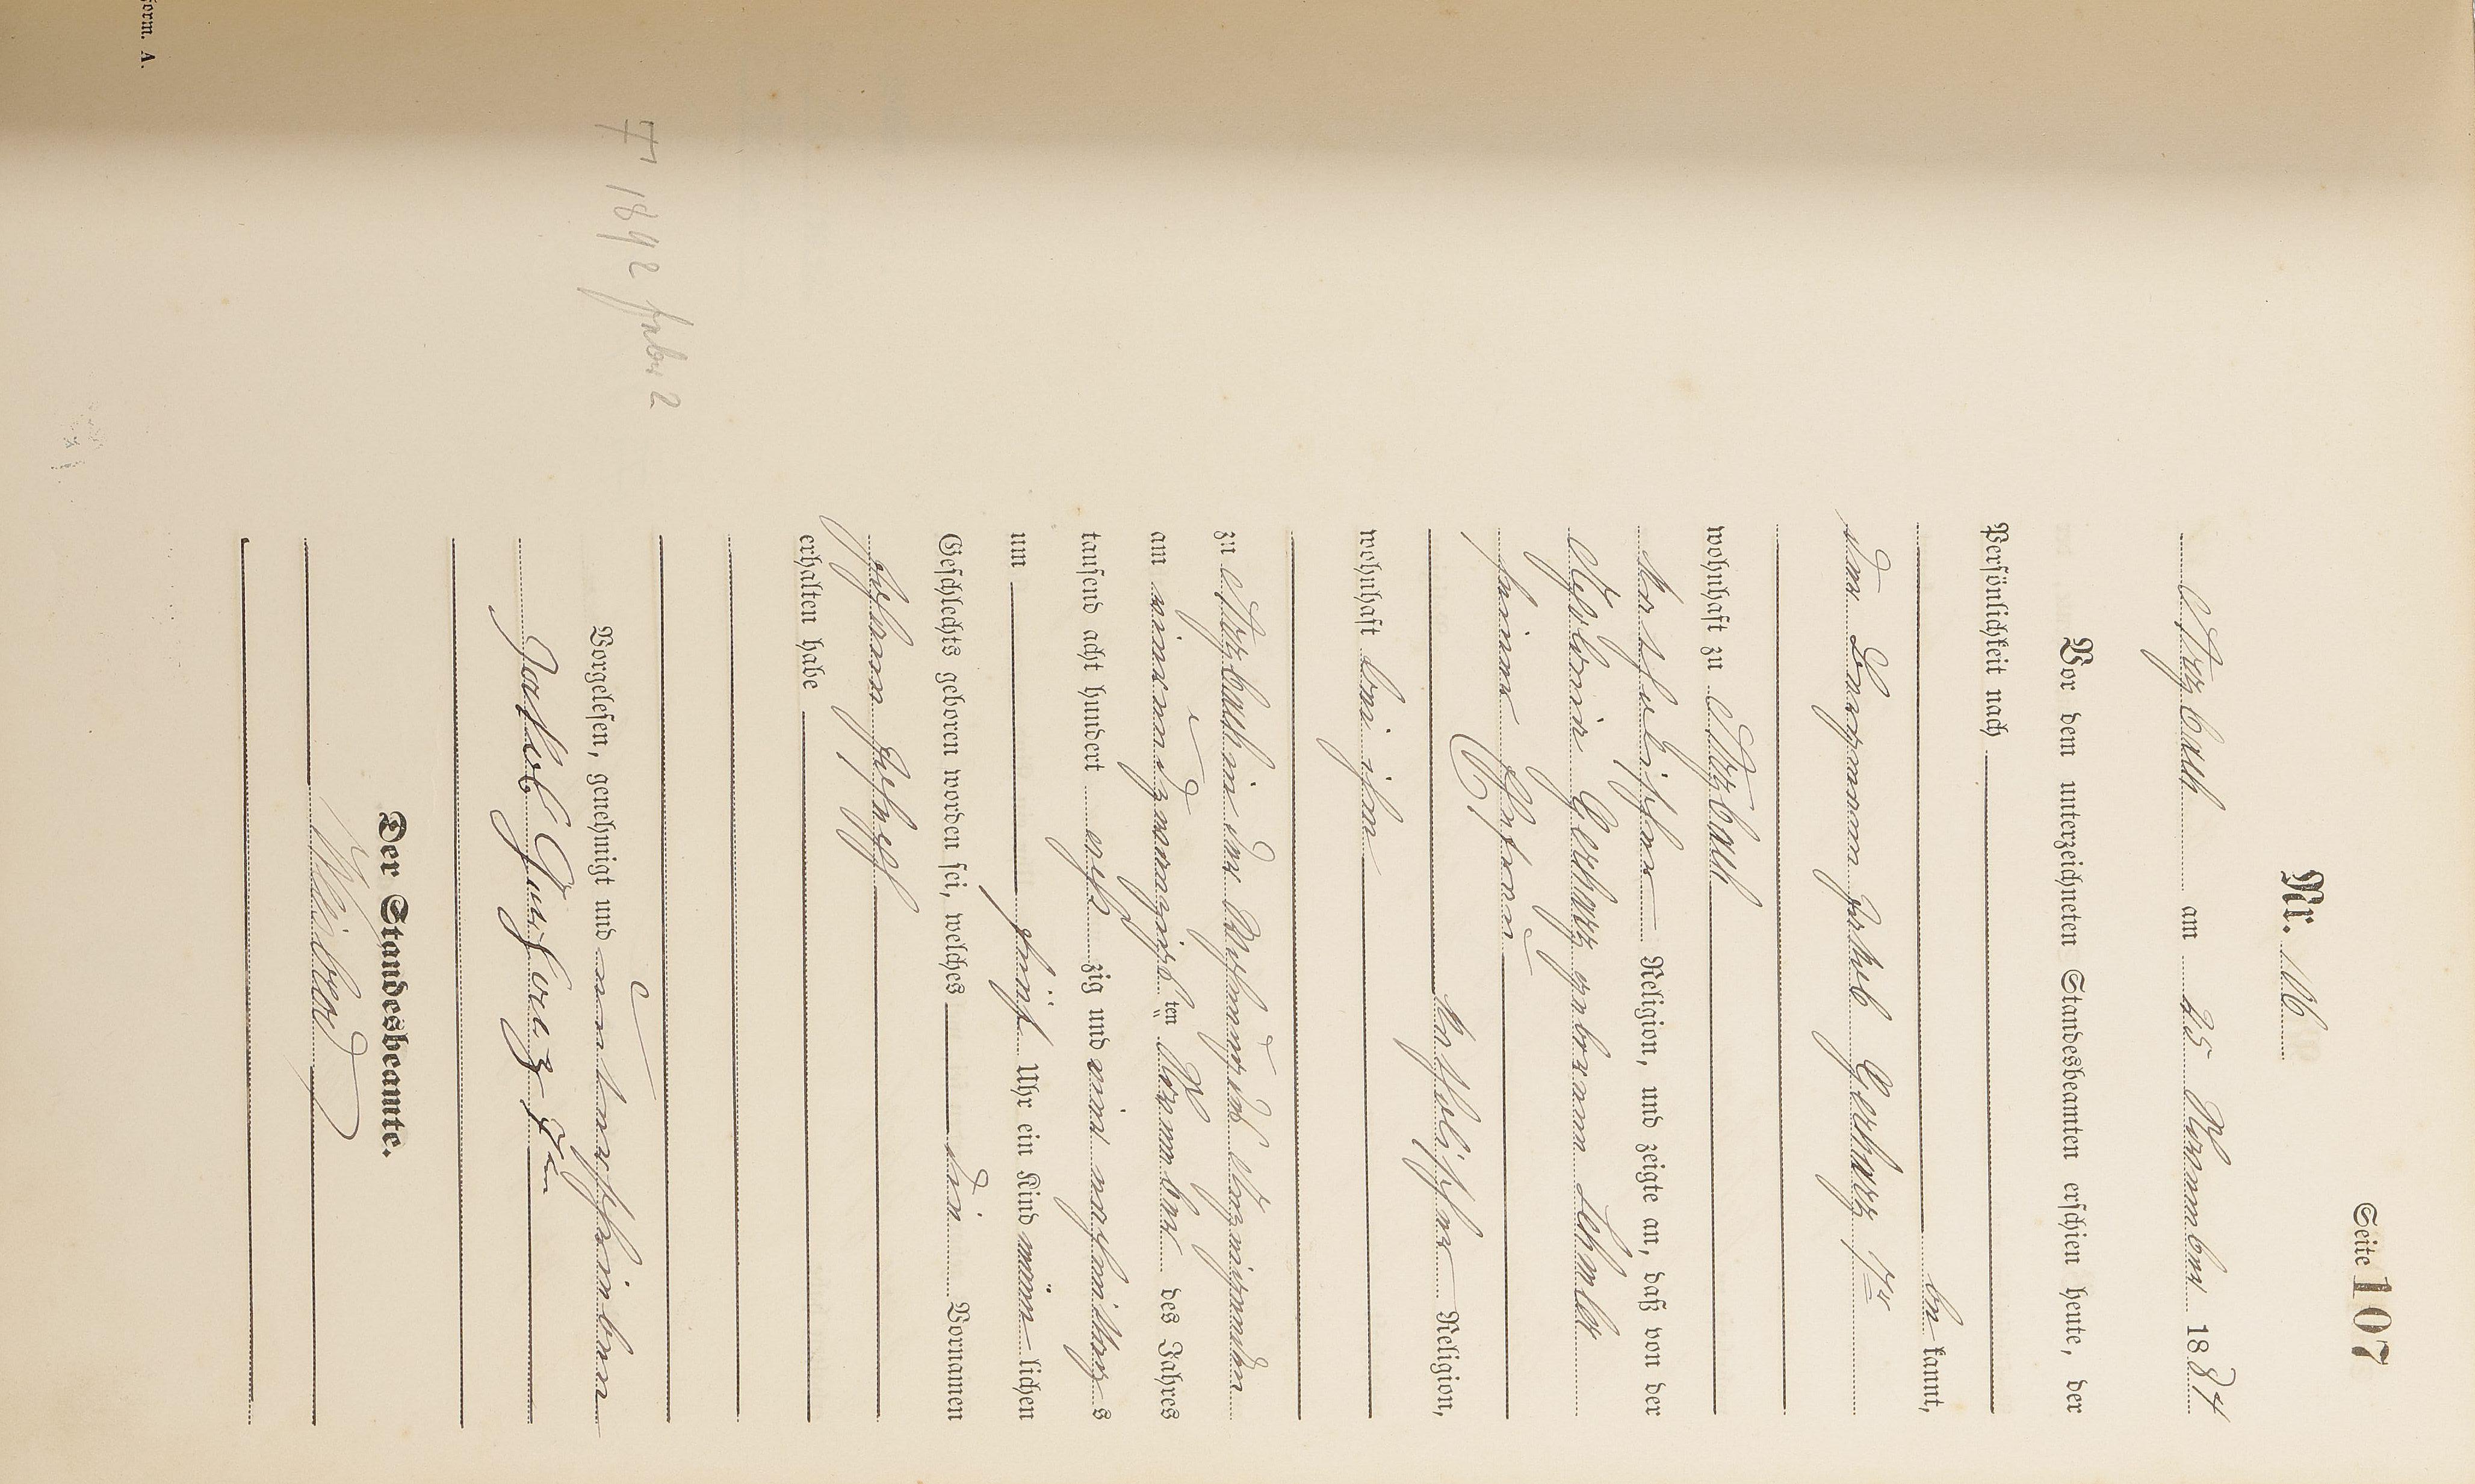 Seite 107
Nr. 106
Atzbach am 25 November 1884
Vor dem unterzeichneten Standesbeamten erschien heute, der
Persönlichkeit nach
be kannt,
der Bergmann Jakob Gerharz 4ter
wohnhaft zu Atzbach
katholischer Religion, und zeigte an, daß von der
Gerharz geborenen Schmidt
seiner Ehefrau
katholischer Religion,
wohnhaft bei ihm
zu Atzbach in der Wohnung des Anzeigenden
am vierundzwanzigsten November des Jahres
tausend acht hundert achtzig und vier nachmittags
um fünf Uhr ein Kind männlichen
Geschlechts geboren worden sei, welches die Vornamen
Johann Joseph
erhalten habe
Vorgelesen, genehmigt und unterschrieben
Jakob Gerharz 4ter
Der Standesbeamte.
† 1892 Febr 2
Form. A.